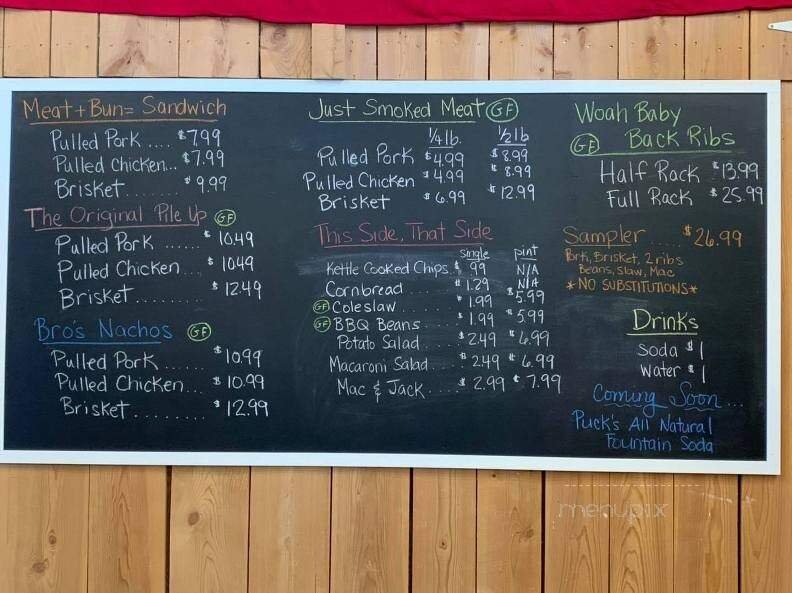 Meat + Bun = Sandwich
Pulled Pork .... $7.99
Pulled Chicken... $7.99
Brisket ........ $9.99
The Original Pile Up GF
Pulled Pork ...... $10.49
Pulled Chicken ... $10.49
Brisket ......... $12.49
Bro's Nachos GF
Pulled Pork ..... $10.99
Pulled Chicken ... $10.99
Brisket ........ $12.99
Just Smoked Meat GF
1/4 lb. 1/2 lb
Pulled Pork $4.99 $8.99
Pulled Chicken $4.99 $8.99
Brisket $6.99 $12.99
This Side, That Side
single pint
Kettle Cooked Chips.. $.99 N/A
Cornbread ........ $1.29 N/A
GF Coleslaw ........ $1.99 $5.99
GF BBQ Beans ...... $1.99 $5.99
Potato Salad ..... $2.49 $6.99
Macaroni Salad .... $2.49 $6.99
Mac & Jack ..... $2.99 $7.99
Woah Baby
GF Back Ribs
Half Rack $13.99
Full Rack $25.99
Sampler ..... $26.99
Pork, Brisket, 2 ribs
Beans, Slaw, Mac
*NO SUBSTITUTIONS*
Drinks
Soda $1
Water $1
Coming Soon...
Puck's All Natural
Fountain Soda
menupix